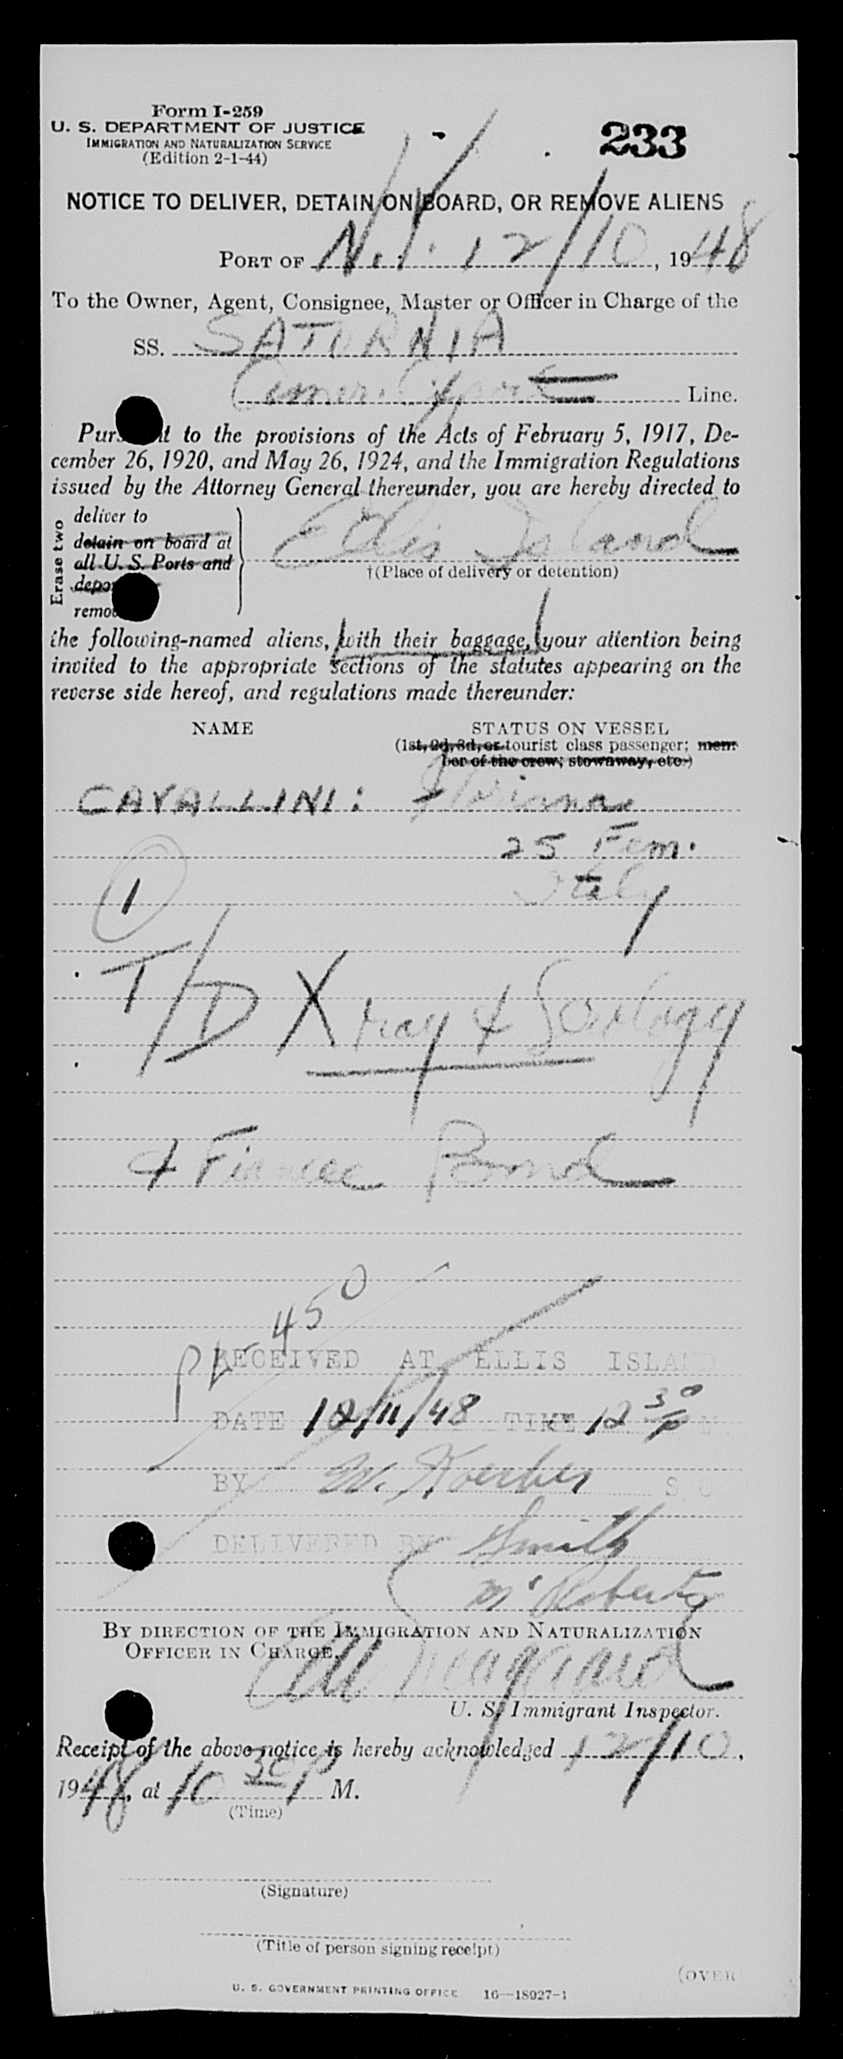 Form I-259
U. S. DEPARTMENT OF JUSTICE
IMMIGRATION AND NATURALIZATION SERVICE
(Edition 2-1-44)
233
NOTICE TO DELIVER, DETAIN ON BOARD, OR REMOVE ALIENS
PORT OF N.Y. 12/10, 1948
To the Owner, Agent, Consignee, Master or Officer in Charge of the
SS. SATURNIA
Amer. Export Line.
Pursuant to the provisions of the Acts of February 5, 1917, De-
cember 26, 1920, and May 26, 1924, and the Immigration Regulations
issued by the Attorney General thereunder, you are hereby directed to
Erase two
deliver to
detain on board at
all U. S. Ports and
Ellis Island
†(Place of delivery or detention)
the following-named aliens, with their baggage, your attention being
invited to the appropriate sections of the statutes appearing on the
reverse side hereof, and regulations made thereunder:
NAME STATUS ON VESSEL
(1st, 2d, 3d, or tourist class passenger; mem-
ber of the crew; stowaway, etc.)
CAVALLINI:
25 Fem.
Italy
1
T/D X ray &
& Fiancee Bond
450
RECEIVED AT ELLIS ISLAND
DATE 12/11/48 TIME 12 30 P M
BY W. Koerber
DELIVERED BY Smith
BY DIRECTION OF THE IMMIGRATION AND NATURALIZATION
OFFICER IN CHARGE,
U. S. Immigrant Inspector.
Receipt of the above notice is hereby acknowledged 12/10,
1948, at 10 30 P M.
(Time)
(Signature)
(Title of person signing receipt)
(OVER
U. S. GOVERNMENT PRINTING OFFICE 16—18027-1